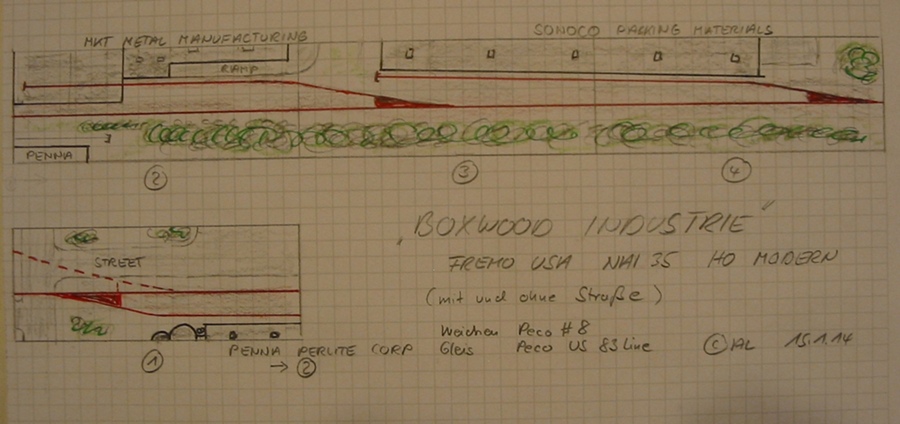 MKT METAL MANUFACTURING
SONOCO PACKING MATERIALS
RAMP
PENNA
2
3
4
STREET
1
PENNA PERLITE CORP
→ 2
„BOXWOOD INDUSTRIE"
FREMO USA NAI 35 HO MODERN
(mit und ohne Straße)
Weichen Peco #8
Gleis Peco US 83 Line
© AL 15.1.14